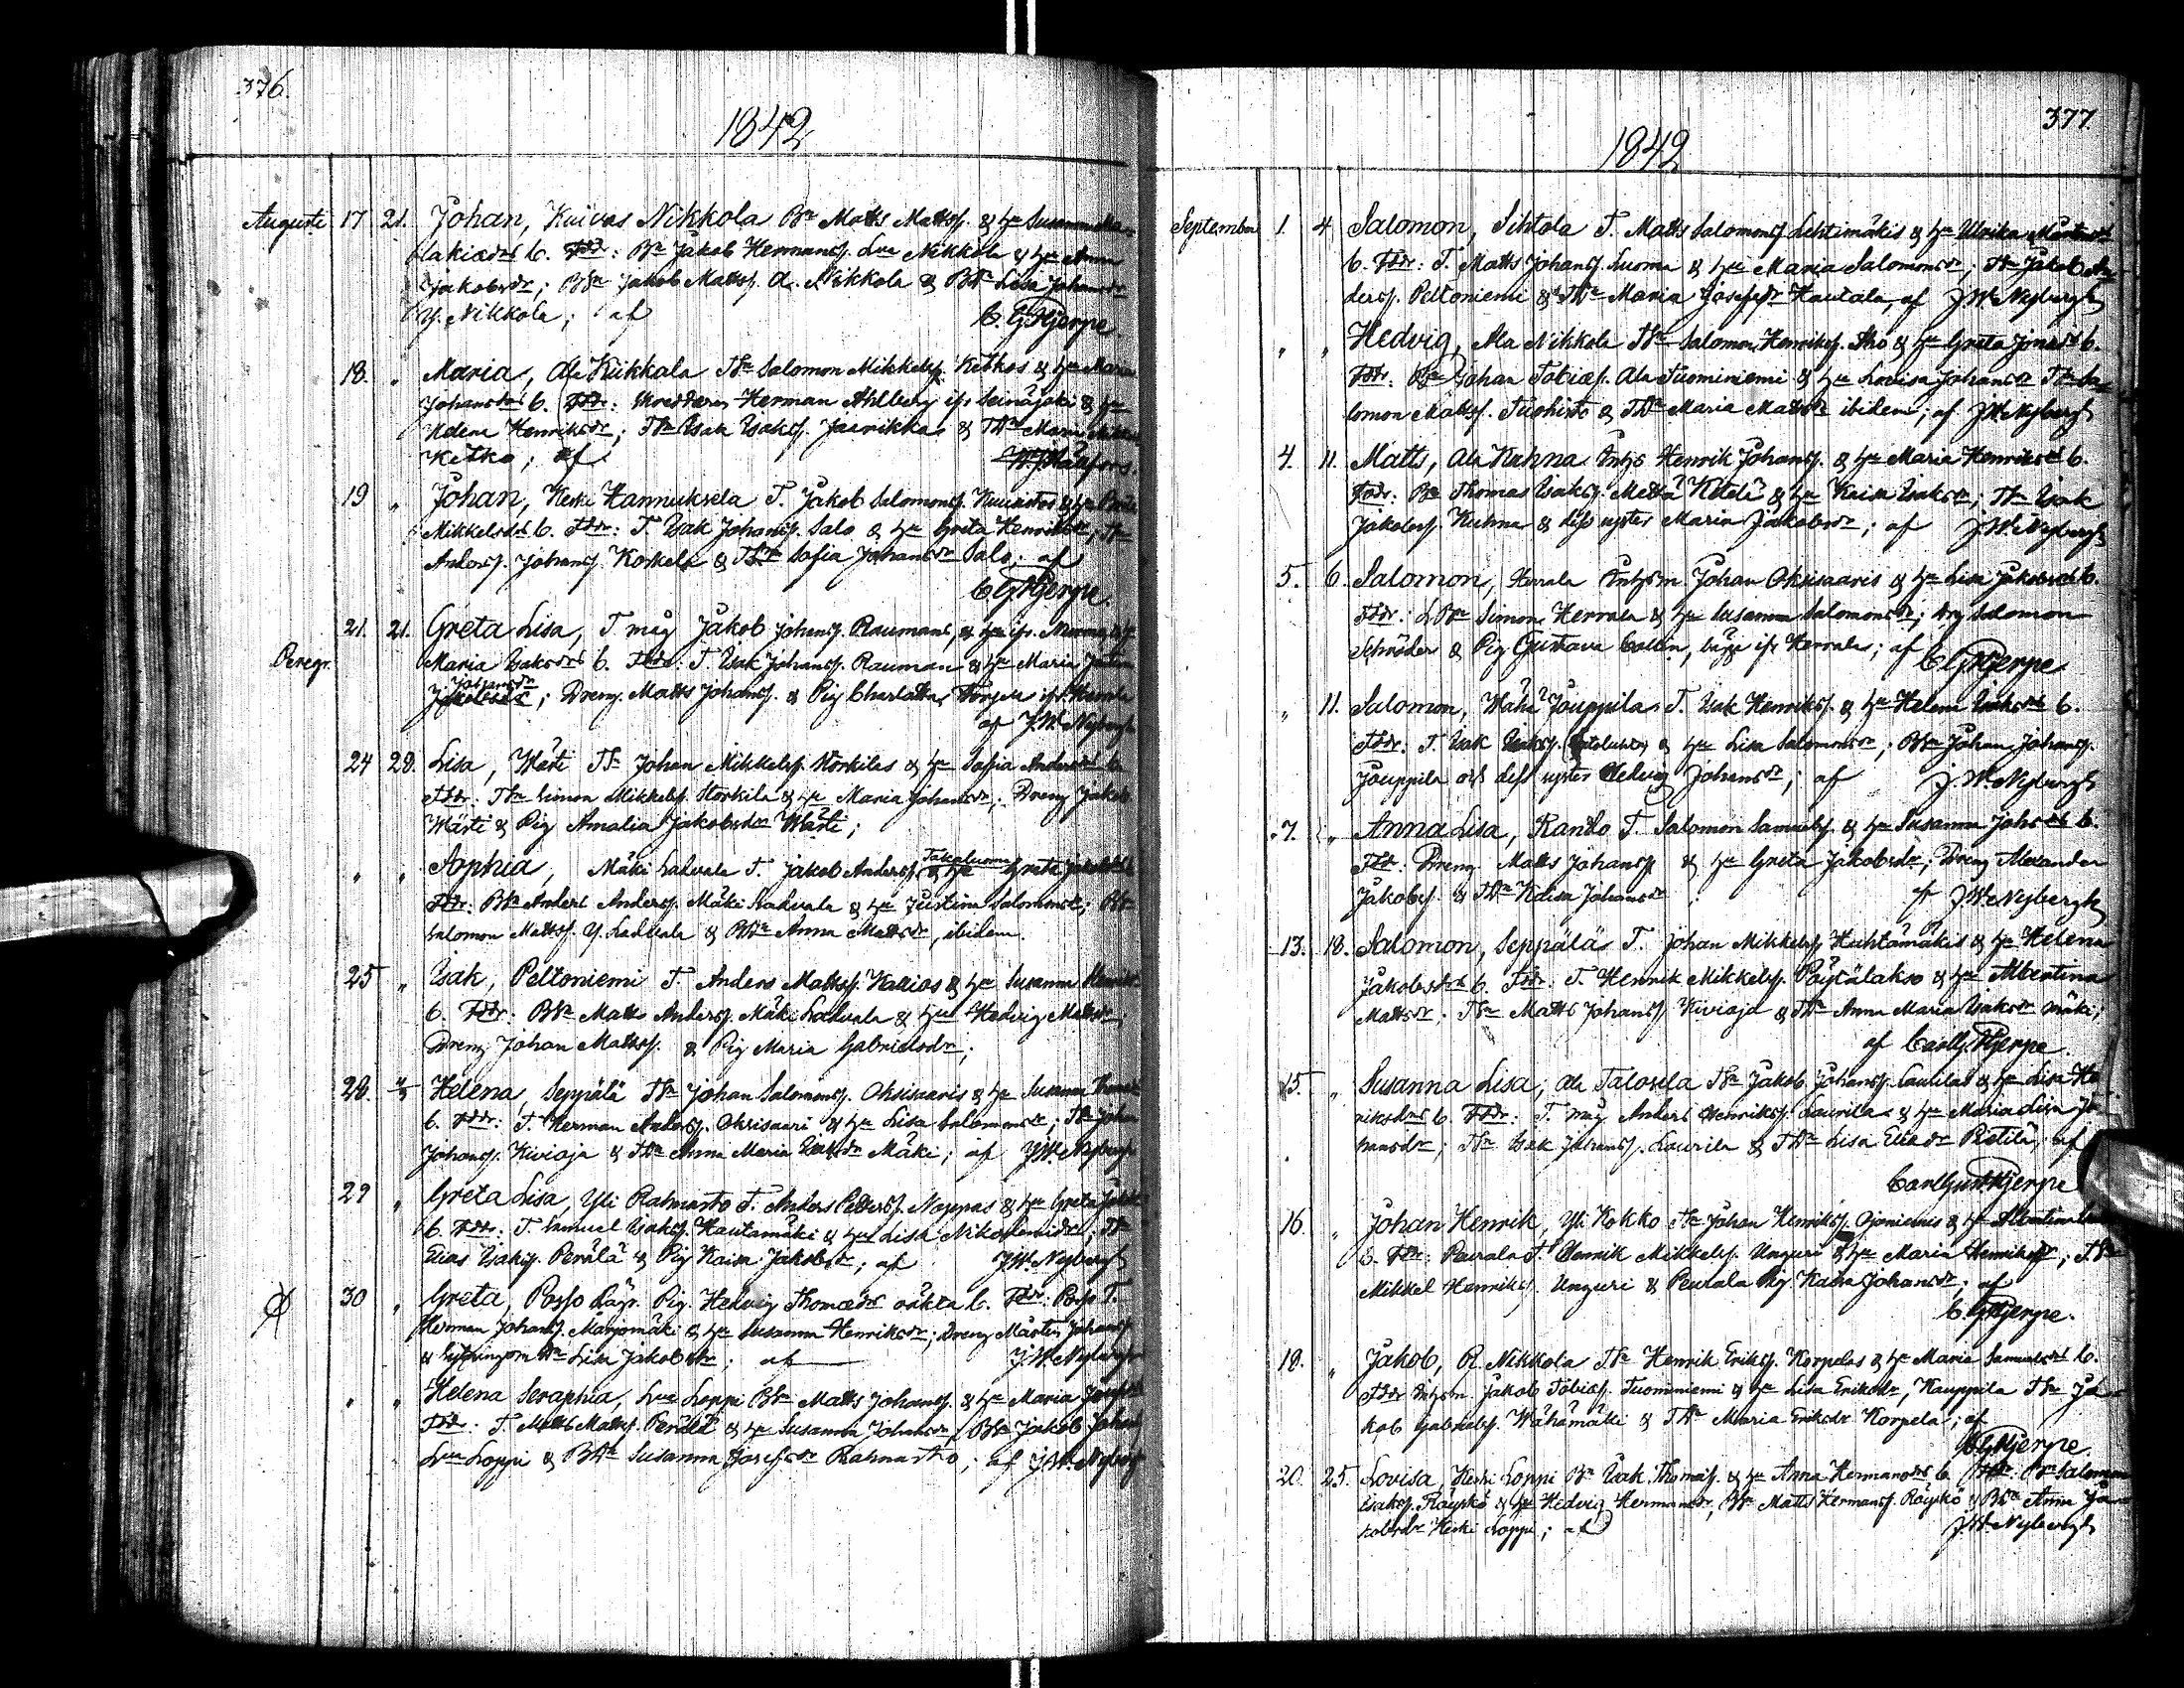 376.
1842
Augusti 17 21. Johan, Kuivas Nikkola Bn Matts Mattss. & hu Susanna Ma-
lakiædrs b. Fddr: Bn Jakob Hermanss. Lua Nikkola & hu Anna
Jakobsdr; BSn Jakob Mattss. A. Nikkola & BDr Lisa Johansdr
Y. Nikkola; af C. G. Hjerpe
18. " Maria, Ala Kiikkala TSn Salomon Mikkelss. Ketkos & hu Maria
Johansdrs b. Fddr: Herman Ahlberg ifr Seinäjoki & hu
Helena Henriksdr; TSn Isak Isakss. Jaarikka & TDr Maria
Ketko; af
19 " Johan, Keski Hannuksela T. Jakob Salomonss. & hu
Mikkelsdrs b. Fddr: T. Isak Johanss. Salo & hu Greta Henriksdr; TSn
Anders Johanss. Korkela & TDr Sofia Johansdr Salo; af
C G Hjerpe.
21. 21. Greta Lisa, T. måg Jakob Johanss. Raumans, & hu ifr.
Peregr. Maria Isaksdrs b. Fddr: T. Isak Johanss. Rauman & hu Maria
Johansdr
; Dreng Matts Johanss. & Pig Charlotta
af J. W. Nybergh
24 28. Lisa, Wärti TSn Johan Mikkelss. Storkilas & hu Sofia Andersdrs b.
Fddr: TSn Simon Mikkelss. Storkila & hu Maria Johansdr; Dreng Jakob
Wärti & Pig Amalia Jakobsdr Wärti;
" " Sophia, Mäki Ladvala T. Jakob Anderss. Takaluoma & hu Greta
Fddr: BSn Anders Anderss. Mäki Ladvala & hu Justina Salomonsdr; BSn
Salomon Mattss. Y. Ladvala & BDr Anna Mattsdr, ibidem.
25 " Isak, Peltoniemi T. Anders Mattss. Kallios & hu Susanna
b. Fddr: BSn Matts Anderss. Mäki Ladvala & hu Hedvig Mattsdr;
Dreng Johan Mattss. & Pig Maria Gabrielsdr;
28. Helena, Seppälä TSn Johan Salomonss. Oksisaaris & hu Susanna
b. Fddr: T. Herman Anderss. Oksisaari & hu Lisa Salomonsdr; TSn Johan
Johanss. Kiviaja & TDr Anna Maria Isaksdr Mäki; af J. W. Nybergh
29 " Greta Lisa, Yli Rahnasto T. Anders Petterss. Noppas & hu Greta
b. Fddr: T. Samuel Isakss. Hautamäki & hu Lisa Nikodemidr;
Elias Isakss. Perälä & Pig Kaisa Jakobsdr; af J. W. Nybergh
30 " Greta, Posso Pig. Hedvig Thomædrs oäkta b. Fddr: Posso T.
Herman Johanss. Marjomäki & hu Susanna Henriksdr; Dreng Mårten Johanss
& Lisa Jakobsdr; af J. W. Nybergh
" " Helena Seraphia, Lua Loppi BSn Matts Johanss. & hu Maria
Fddr: T. Matts Mattss. Perälä & hu Susanna Johansdr; BSn Jakob
Lua Loppi & BDr Susanna Josefsdr Rahnasto; af J. W. Nybergh
377.
1842
September 1. 4 Salomon, Sihtola T. Matts Salomonss Lehtimäkis & hu Ulrika Mårtensdrs
b. Fddr: T. Matts Johanss. Luoma & hu Maria Salomonsdr; TSn Jakob An-
derss. Peltoniemi & TDr Maria Josefsdr Hautala, af J. W. Nybergh
" " Hedvig, Ala Nikkola TSn Salomon Henrikss. Aho & hu Greta Jonædrs b.
Fddr: Bn Johan Tobiæss. Ala Tuominiemi & hu Lovisa Johansdr TSn Sa-
lomon Mattss. Tuohisto & TDr Maria Mattsdr ibidem; af J. W. Nybergh
4. 11. Matts, Ala Kuhna Inhys Henrik Johanss. & hu Maria Henriksdrs b.
Fddr: Bn Thomas Isakss. Mettä Kitelä & hu Kaisa Isaksdr; TSn Isak
Jakobss. Kuhna & dess syster Maria Jakobsdr; af J. W. Nybergh
5. 6. Salomon, Herrala Inhysm Johan Oksisaaris & hu Lisa Jakobsdrs b.
Fddr: LBn Simon Herrala & hu Susanna Salomonsdr; Drg Salomon
Schröder & Pig Gustava Collin, bägge ifr Herrala; af C G Hjerpe
" 11. Salomon, Wähä Jouppila T. Isak Henrikss. & hu Helena Isaksdrs b.
Fddr: T. Isak Isakss. & hu Lisa Salomonsdr; BSn Johan Johanss.
Jouppila och dess syster Hedvig Johansdr; af J. W. Nybergh
7. " Anna Lisa, Ranto T. Salomon Samuelss. & hu Susanna Johsdrs b.
Fddr. Dreng Matts Johanss & hu Greta Jakobsdr; Dreng Alexander
Jakobss. & TDr Kaisa Johansdr af J. W. Nybergh
13. 18. Salomon, Seppälä T. Johan Mikkelss Huhtämäkis & hu Helena
Jakobsdrs b. Fddr. T. Henrik Mikkelss. Pöytälakso & hu Albertina
Mattsdr; TSn Matts Johanss Kiviaja & TDr Anna Maria Isaksdr Mäki;
af Carl G. Hjerpe.
15. " Susanna Lisa, Ala Talosela TSn Jakob Johanss. Laurilas & hu Lisa He-
riksdrs b. Fddr: T. måg Anders Henrikss. Laurila & hu Maria Lisa Jo-
hansdr; TSn Isak Johanss. Laurila & TDr Lisa Eliædr Pietilä; af
Carl Gust Hjerpe
16. " Johan Henrik, Yli Kokko TSn Johan Henrikss. Ojaniemis & hu Albertina
b. Fddr: Peurala T. Henrik Mikkelss. Unguri & hu Maria Henriksdr; TSn
Mikkel Henrikss. Unguri & Peurala Pig. Kaisa Johansdr; af
C. G. Hjerpe.
18. " Jakob, A. Nikkola TSn Henrik Erikss. Korpelas & hu Maria Samuelsdrs b.
Fddr Inhysm. Jakob Tobiæss. Tuominiemi & hu Lisa Eriksdr; Kauppila TSn Ja-
kob Gabrielss. Wähämäki & TDr Maria Eriksdr Korpela; af
C G Hjerpe.
20. 25. Lovisa, Keski Loppi Bn Isak Thomæss. & hu Anna Hermansdrs b Fddr. Bn Salomon
Isakss. Röyskö & hu Hedvig Hermansdr, BSn Matts Hermanss. Röyskö & BDr Anna Ja-
kobsdr Keski Loppi; af J. W. Nybergh